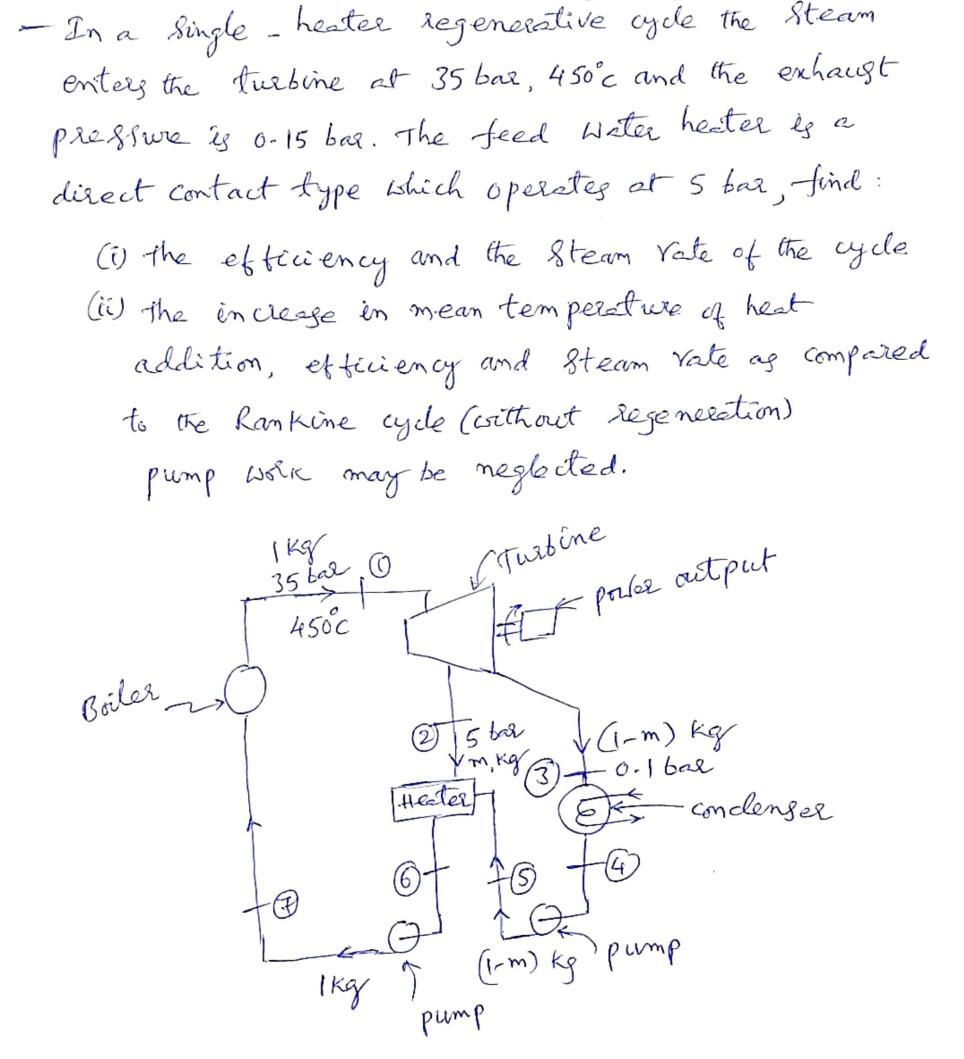 — In a single - heater regenerative cycle the steam
enters the turbine at 35 bar, 450°c and the exhaust
pressure is 0.15 bar. The feed water heater is a
direct contact type which operates at 5 bar, find :
(i) the efficiency and the steam rate of the cycle
(ii) the increase in mean temperature of heat
addition, efficiency and steam rate as compared
to the Rankine cycle (without regeneration)
pump work may be neglected.
1 kg
35 bar
①
450°c
Turbine
power output
Boiler
②
5 bar
m, kg
(1-m) kg
③
0.1 bar
Heater
condenser
⑥
⑤
④
⑦
1kg
(1-m) kg
pump
pump